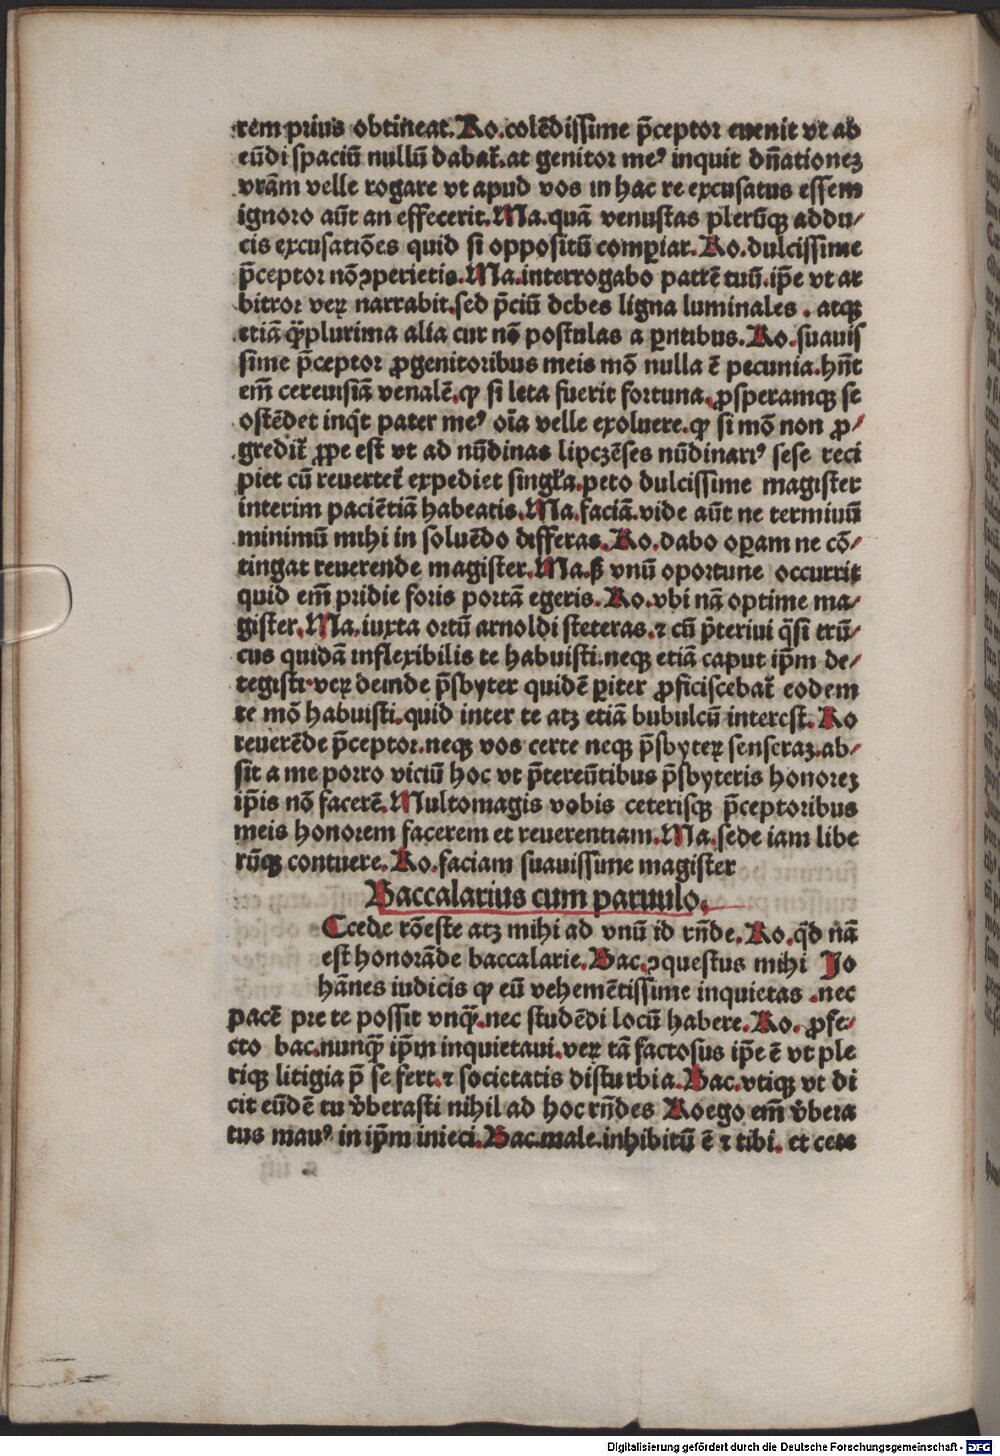 rem prius obtineat. Ro. colēdissime p̄ceptor euenit vt ab
eūdi spaciū nullū dabat̄. at genitor meꝰ inquit dn̄ationeꝫ
vr̄am velle rogare vt apud vos in hac re excusatus essem
ignoro aūt an effecerit. Ma. quā venustas plerūqꝫ addu⸗
cis excusatiōes quid si oppositū comꝑiar. Ro. dulcissime
p̄ceptor nō ꝯperietis. Ma. interrogabo patrē tuū. ip̄e vt ar
bitror veꝝ narrabit. sed p̄ciū debes ligna luminales. atqꝫ
etiā qͣ̄plurima alia cur nō postulas a ꝑntibus. Ro. suauis
sime p̄ceptor ꝓgenitoribus meis mō nulla ē pecunia. hn̄t
em̄ cereuisiā venalē. ꝙ si leta fuerit fortuna. ꝓsperamqꝫ se
ostēdet inqͥt pater meꝰ oīa velle exoluere. ꝙ si mō non ꝓ⸗
gredit̄ ꝓpe est vt ad nūdinas lipczēses nūdinariꝰ sese reci
piet cū reuertet̄ expediet singl̄a. peto dulcissime magister
interim paciētiā habeatis. Ma. faciā. vide aūt ne terminū
minimū mihi in soluēdo differas. Ro. dabo oꝑam ne cō⸗
tingat reuerende magister. Ma. ß vnū oportune occurrit
quid em̄ pridie foris portā egeris. Ro. vbi nā optime ma⸗
gister. Ma. iuxta ortū arnoldi steteras. ⁊ cū p̄teriui qͣsi trū⸗
cus quidā inflexibilis te habuisti. neqꝫ etiā caput ip̄m de⸗
tegisti. veꝝ deinde p̄sbyter quidē ꝑiter ꝓficiscebat̄ eodem
te mō habuisti. quid inter te atqꝫ etiā bubulcū interest. Ro
reuerēde p̄ceptor. neqꝫ vos certe neqꝫ p̄sbyteꝝ senseraꝫ. ab⸗
sit a me porro viciū hoc vt p̄tereūtibus p̄sbyteris honoreꝫ
ip̄is nō facerē. Multomagis vobis ceterisqꝫ p̄ceptoribus
meis honorem facerem et reuerentiam. Ma. sede iam libe
rūqꝫ contuere. Ro. faciam suauissime magister
Baccalarius cum paruulo.
Ccede rōeste atqꝫ mihi ad vnū id rn̄de. Ro. qͥd nā
est honorāde baccalarie. Bac. ꝯquestus mihi Jo
hānes iudicis ꝙ eū vehemētissime inquietas. nec
pacē pre te possit vnqͣ̄. nec studēdi locū habere. Ro. ꝓfe⸗
cto bac. nunqͣ̄ ip̄m inquietaui. veꝝ tā factosus ip̄e ē vt ple
riqꝫ litigia p̄ se fert. ⁊ societatis disturbia. Bac. vtiqꝫ vt di
cit eūdē tu v̄berasti nihil ad hoc rn̄des Ro ego em̄ v̄bera
tus manꝰ in ip̄m inieci. Bac. male. inhibitū ē ⁊ tibi. et cete
Digitalisierung gefördert durch die Deutsche Forschungsgemeinschaft - DFG